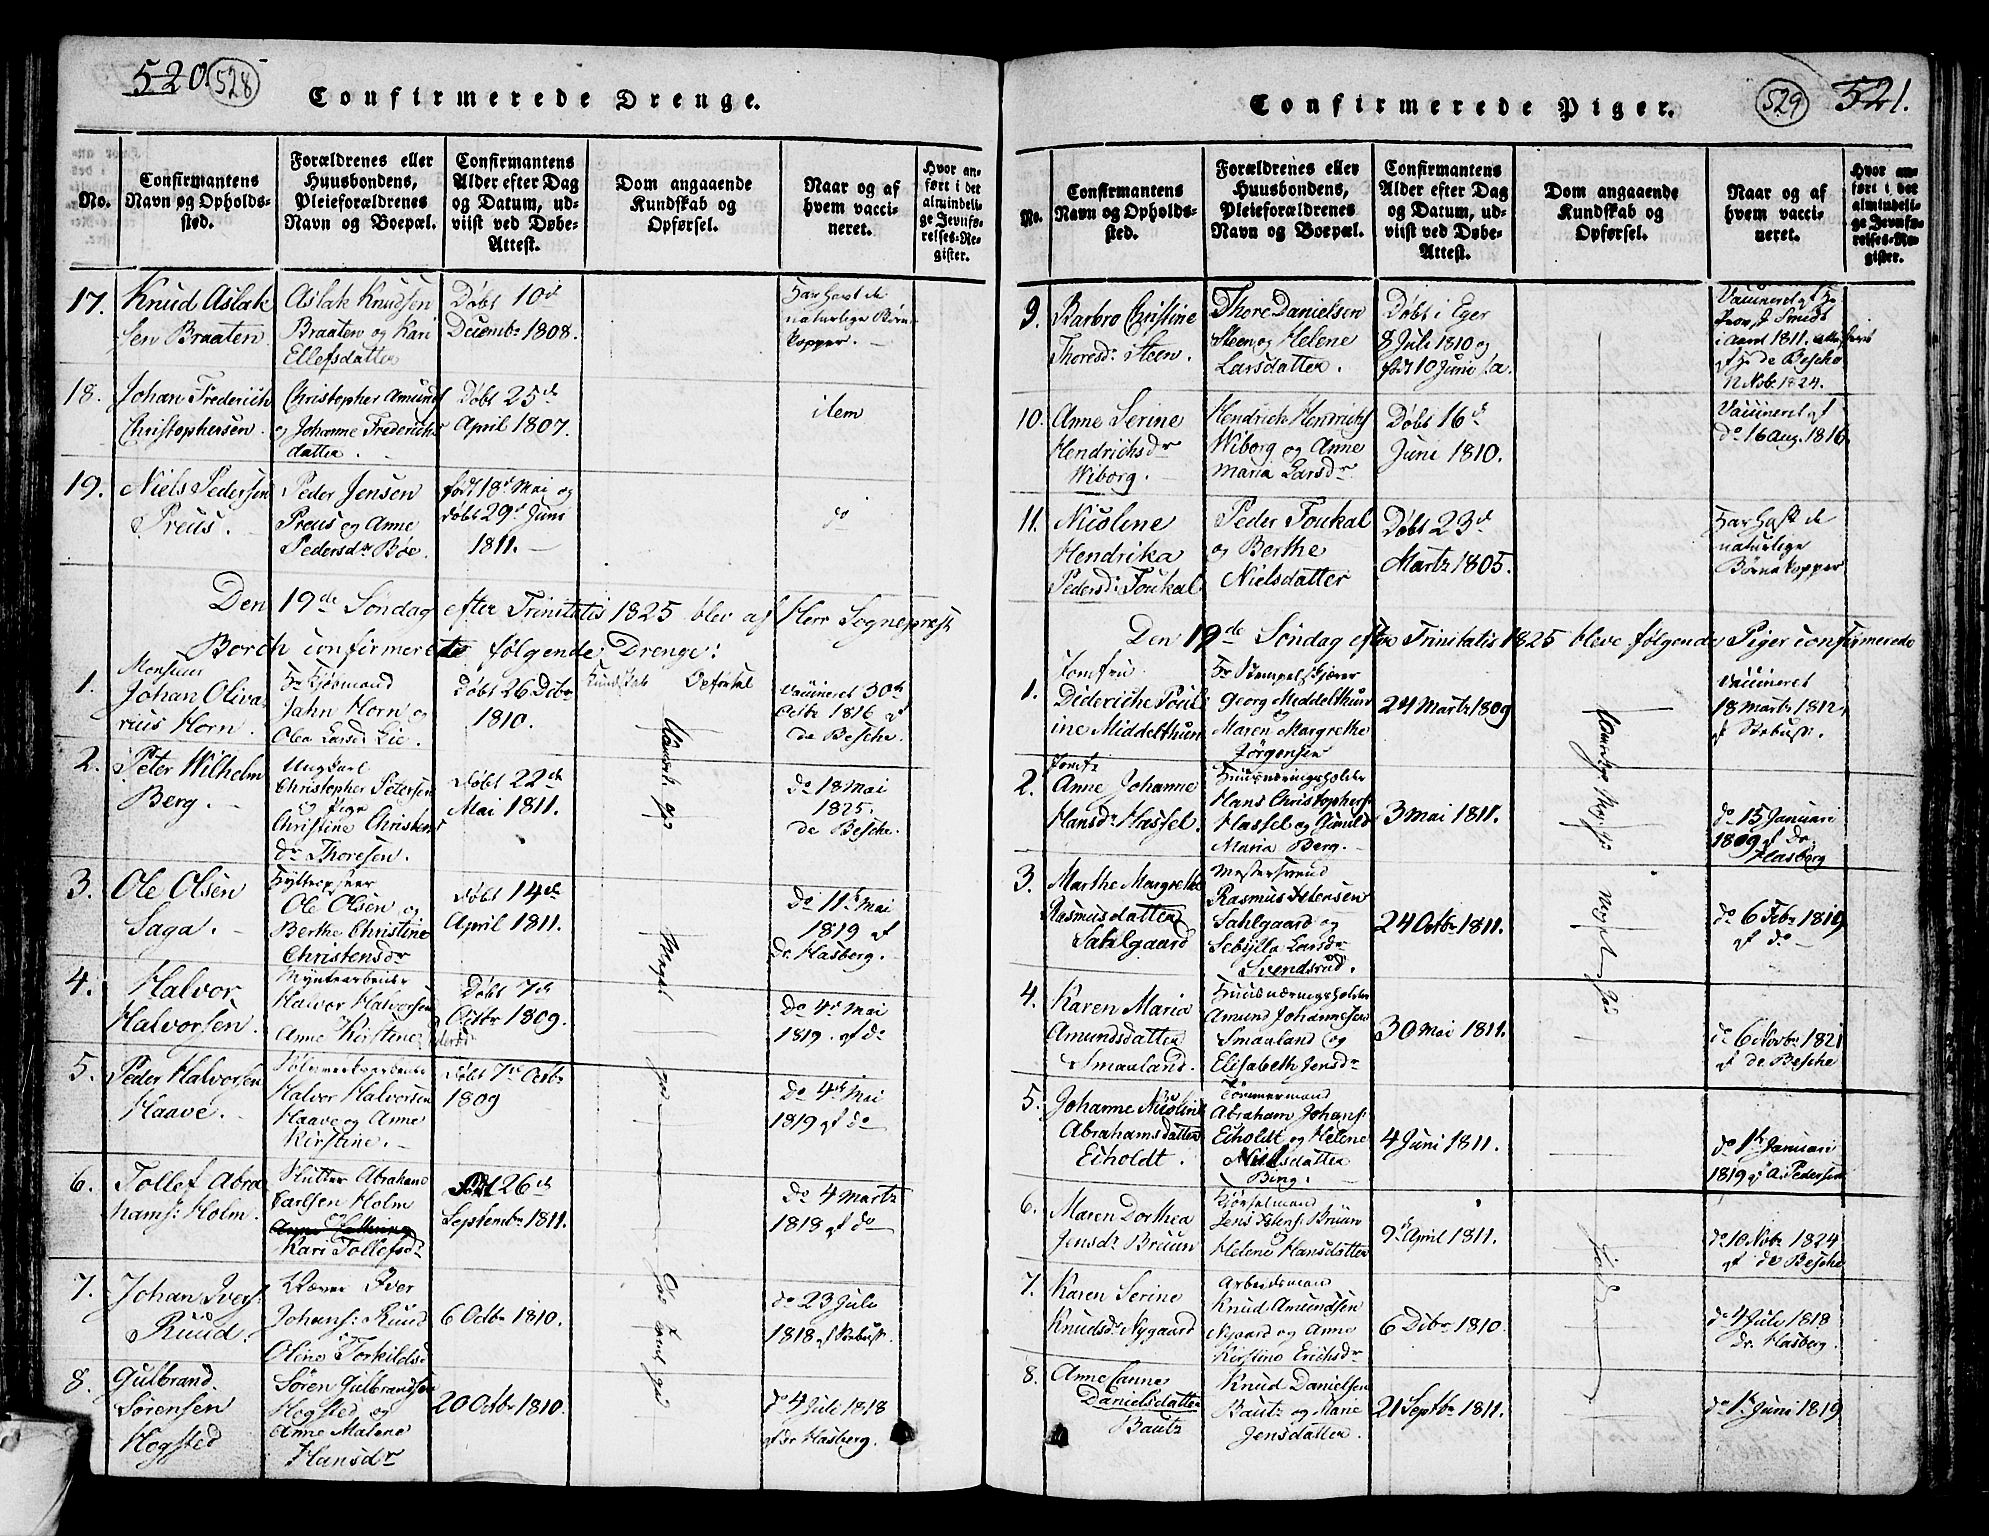 520. 528
Confirmerede Drenge.
No.
Confirmantens Navn og Opholdssted.
Forældrenes eller Huusbondens, Pleieforældrenes Navn og Boepæl.
Confirmantens Alder efter Dag og Datum, udviist ved Døbe-Attest.
Dom angaaende Kundskab og Opførsel.
Naar og af hvem vaccineret.
Hvor anført i det almindelige Jevnførelses-Register.
17. Knud Aslaksen Braaten.
Aslak Knudsen Braaten og Kari Ellefsdatter
Døbt 10d Decembr 1808.
Har havt de naturlige Børnekopper.
18. Johan Frederich Christophersen.
Christopher Amunds og Johanne Frederichsdatter.
Døbt 25de April 1807.
item
19. Niels Pedersen Preus.
Peder Jensen Preus og Anne Pedersdr Bøe.
født 18d Mai og døbt 29d Juni 1811.
do
Den 19de Søndag efter Trinitatis 1825 blev af Herr Sogneprest
Borch confirmerede følgende Drenge:
1. Monsieur Johan Olivarius Horn.
Hr Kjøbmand Jahn Horn og Olea Larsd Lie.
Døbt 26 Debr 1810.
Kundskab Opførsel
vaccineret 30th Octbr 1816 af de Besche.
2. Peter Wilhelm Berg.
Ungkarl Christopher Petersen og Pige Christine Christensdr Thoresen.
Døbt 22de Mai 1811.
do 18 Mai 1825. de Besche.
3. Ole Olsen Saga.
Ole Olsen og Berthe Christine Christensdr
Døbt 14de April 1811.
do 11te Mai 1819 af dr Hasberg.
4. Halvor Halvorsen.
Myntearbeider Halvor Halvorsen Anne Kirstine
Døbt 7de Octbr 1809.
do 4de Mai 1819. af do
5. Peder Halvorsen Haave.
Halvor Halvorsen Haave og Anne Kirstine.
Døbt 7de Octbr 1809
do 4de Mai 1819 af do
6. Tollef Abrahams: Holm.
Hutter Abraham Carlsen Holm Kari Tollefsdr
26de September 1811.
do 4 Martz 1818 af do
7. Johan Ivers: Ruud.
Iver Johans: Ruud Oline Torkildsd
6 Octbr 1810.
do 23 Juli 1818 af Stribust.
8. Gulbrand Sørensen Hogsted
Søren Gulbrandsen Hogsted og Anne Malene Hansdr
20 Octbr 1810.
do 4 Juli 1818 af dr Hasberg.
529 521.
Confirmerede Piger.
No.
Confirmantens Navn og Opholdssted.
Forældrenes eller Huusbondens, Pleieforældrenes Navn og Boepæl.
Confirmantens Alder efter Dag og Datum, udviist ved Døbe-Attest.
Dom angaaende Kundskab og Opførsel.
Naar og af hvem vaccineret.
Hvor anført i det almindelige Jevnførelses-Register.
9. Barbro Christine Thoresdr Steen.
Thore Danielsen Steen og Helene Larsdatter.
Døbt i Eger 8 Juli 1810 og født 10 Juni s.a.
Vaccineret af Hr Smidt i Aaret 1811. de Besche 12 Nobr 1824.
10. Anne Serine Hendrichsdr Wiborg.
Hendrich Hendrichs Wiborg og Anne Maria Larsdr
Døbt 16d Juni 1810.
Vaccineret af do 16 Aug. 1816
11. Nicoline Hendrika Pedersd: Foukal
Peder Foukal og Berthe Nielsdatter
Døbt 23d Martz 1805.
Har havt de naturlige Børnekopper
Den 19de Søndag efter Trinitatis 1825 bleve følgende Piger confirmerede
1. Jomfru Dideriche Pouline Middelthun
Hr Stempelskjærer Georg Middelthun og Maren Margrethe Jørgensen
24 Martz 1809
vaccineret 18 Martz 1812, af Stribust.
2. Jomfr Anne Johanne Hansdr Hassel.
Huusnæringsholder Hans Christophers: Hassel og Gunild Maria Berg.
3 Mai 1811.
do 15 Januari 1809 af dr Hasberg
3. Marthe Margrethe Rasmusdatter Sahlgaard
Mestersvend Rasmus Petersen Sahlgaard og Sebylla Larsdr Svendsrud.
24 Octbr 1811.
do 6 Febr 1819 af do
4. Karen Maria Amundsdatter Smaaland.
Huusnæringsholder Amund Johannesen Smaaland og Elisabeth Jensdr
30 Mai 1811.
do 6 Novbr 1821 af de Besche
5. Johanne Nicoline Abrahamsdatter Eiholdt.
Tømmermand Abraham Johans: Eiholdt og Helene Nielsdatter Bing.
4 Juni 1811.
do 1te Januari 1819 af A. Pedersen
6. Maren Dorthea Jensdr Bruun
Kjørselmand Jens Jens: Bruun Helene Hansdatter
9de April 1811.
do 10 Nobr 1824 af de Besche
7. Karen Serine Knudsdr Nygaard
Arbeidsmand Knud Amundsen Nygaard og Anne Kirstine Erichsdr
6 Debr 1810.
do 4 Juli 1818 dr. Hasberg.
8. Anne Danielsdatter Bautz
Knud Danielsen Bautz og Mane Jensdatter.
21 Septbr 1811.
do 1te Juni 1819